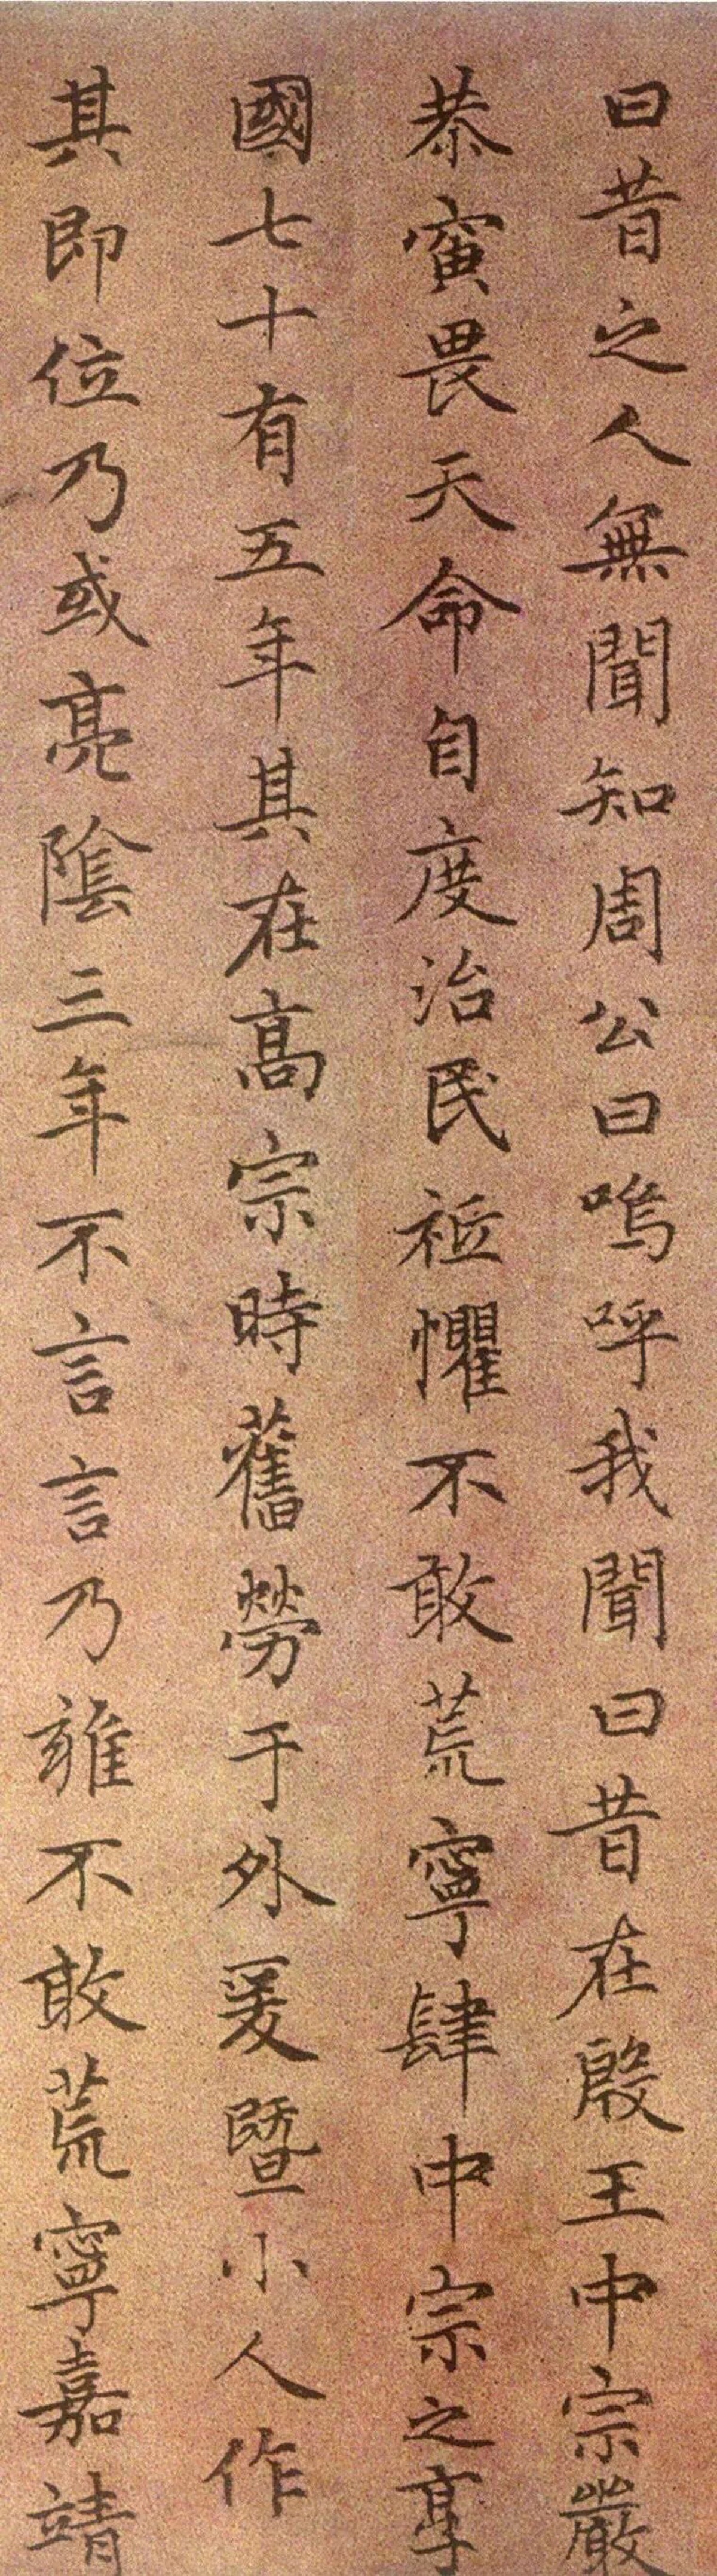 曰昔之人無聞知周公曰嗚呼我聞曰昔在殷王中宗嚴
恭寅畏天命自度治民祗懼不敢荒寧肆中宗之享
國七十有五年其在高宗時舊勞于外爰暨小人作
其即位乃或亮陰三年不言言乃雍不敢荒寧嘉靖